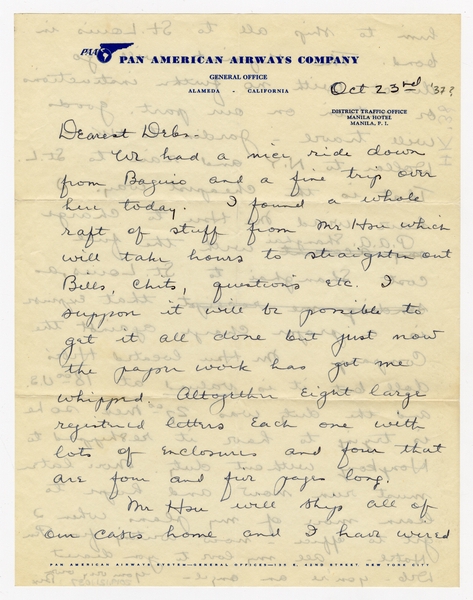 PAA PAN AMERICAN AIRWAYS COMPANY
GENERAL OFFICE
ALAMEDA - CALIFORNIA
Oct 23rd '37?
DISTRICT TRAFFIC OFFICE
MANILA HOTEL
MANILA, P. I.
Dearest Debs-
We had a nice ride down
from Baguio and a fine trip over
here today. I found a whole
raft of stuff from Mr Hsu which
will take hours to straighten out
Bills, Chits, questions etc. I
suppose it will be possible to
get it all done but just now
the paper work has got me
whipped. Altogether Eight large
registered letters Each one with
lots of enclosures and four that
are four and five pages long.
Mr Hsu will ship all of
our cases home and I have wired
PAN AMERICAN AIRWAYS SYSTEM—GENERAL OFFICES—135 E. 42ND STREET NEW YORK CITY